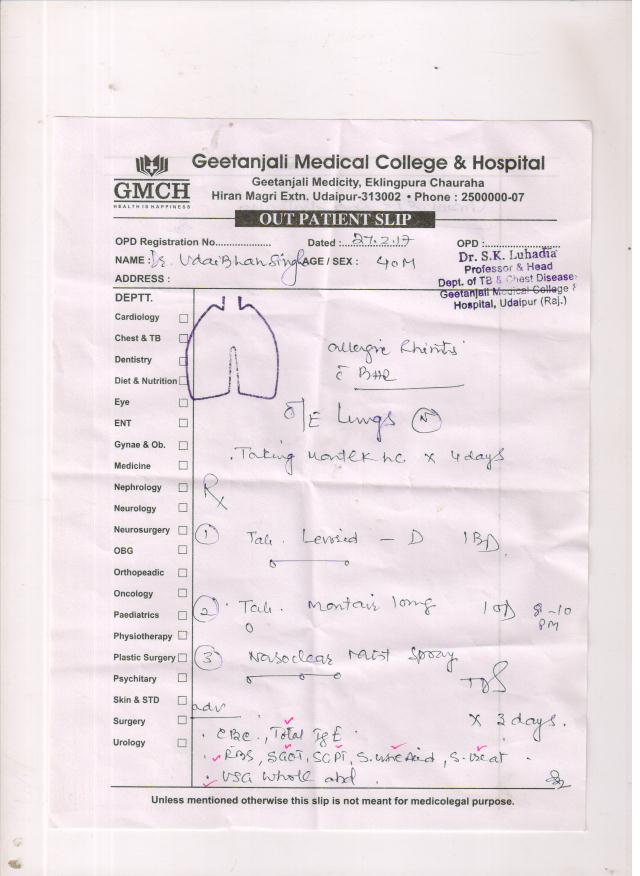 Geetanjali Medical College & Hospital
GMCH
HEALTH IS HAPPINESS
Geetanjali Medicity, Eklingpura Chauraha
Hiran Magri Extn. Udaipur-313002 • Phone : 2500000-07
OUT PATIENT SLIP
OPD Registration No................... Dated : 27.2.17 OPD :....................
NAME : Dr. UdaiBhan Singh AGE / SEX : 40 M
Dr. S.K. Luhadia
Professor & Head
Dept. of TB & Chest Disease
Geetanjali Medical College &
Hospital, Udaipur (Raj.)
ADDRESS :
DEPTT.
Cardiology
Chest & TB
Dentistry
Diet & Nutrition
Eye
ENT
Gynae & Ob.
Medicine
Nephrology
Neurology
Neurosurgery
OBG
Orthopeadic
Oncology
Paediatrics
Physiotherapy
Plastic Surgery
Psychitary
Skin & STD
Surgery
Urology
allergic Rhinitis
c̄ BHR
O/E Lungs (N)
Taking Montek LC x 4 days
Rx
1 Tab. Levosid - D 1BD
2 Tab. Montair 10mg 1 OD 8-10 PM
3 Nasoclear Mist Spray
TDS
x 3 days.
adv
CBC, Total IgE
RBS, SGOT, SGPT, S. Uric Acid, S. Creat
USG Whole abd
Unless mentioned otherwise this slip is not meant for medicolegal purpose.